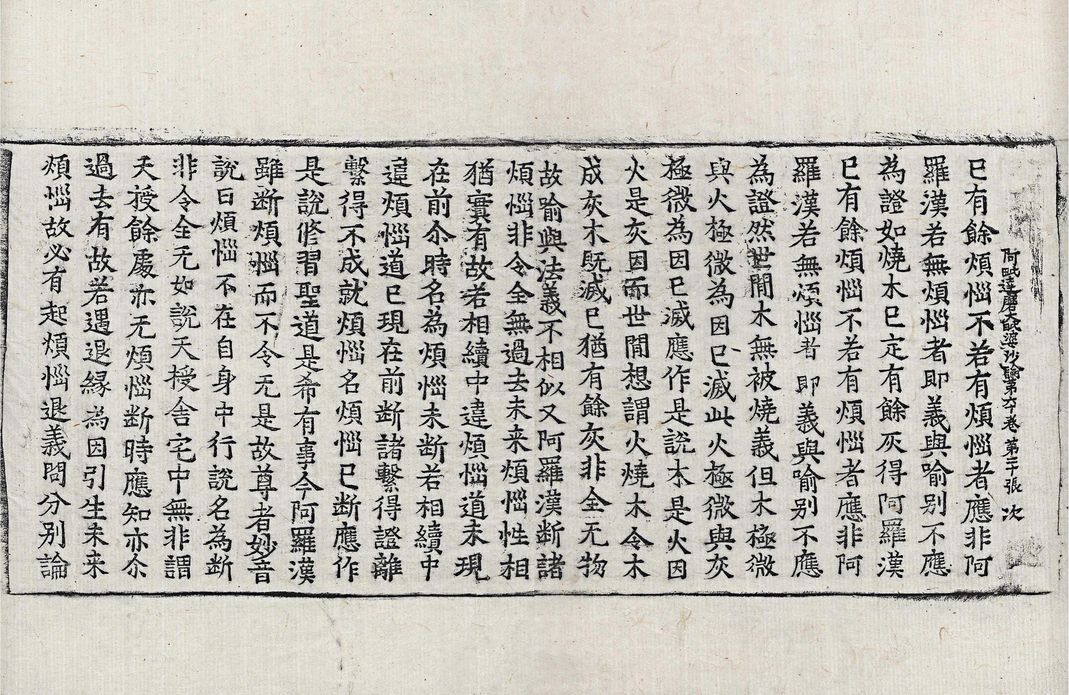 阿毗達磨毗婆沙論第六十卷 第二十張 次
巳有餘煩惱不若有煩惱者應非阿
羅漢若無煩惱者即義與喻别不應
為證如燒木巳定有餘灰得阿羅漢
巳有餘煩惱不若有煩惱者應非阿
羅漢若無煩惱者即義與喻别不應
為證然世間木無被燒義但木極微
與火極微為因巳滅此火極微與灰
極微為因巳滅應作是說木是火因
火是灰因而世間想謂火燒木令木
成灰木既滅巳猶有餘灰非全无物
故喻與法義不相似又阿羅漢断諸
煩惱非令全無過去未来煩惱性相
猶實有故若相續中違煩惱道未現
在前尒時名為煩惱未断若相續中
違煩惱道巳現在前断諸繫得證離
繫得不成就煩惱名煩惱巳断應作
是說修習聖道是希有事令阿羅漢
雖断煩惱而不令无是故尊者妙音
說曰煩惱不在自身中行說名為断
非令全无如說天授舎宅中無非謂
天授餘處亦无煩惱断時應知亦尒
過去有故若遇退緣為因引生未来
煩惱故必有起煩惱退義問分别論